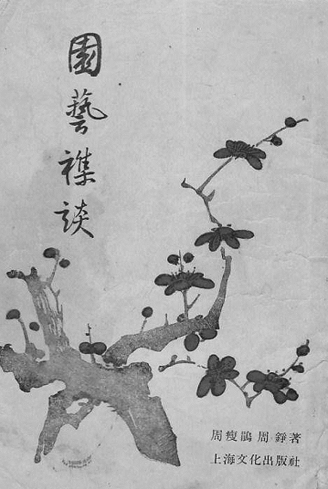 園藝襍談
周瘦鵑 周錚著
上海文化出版社